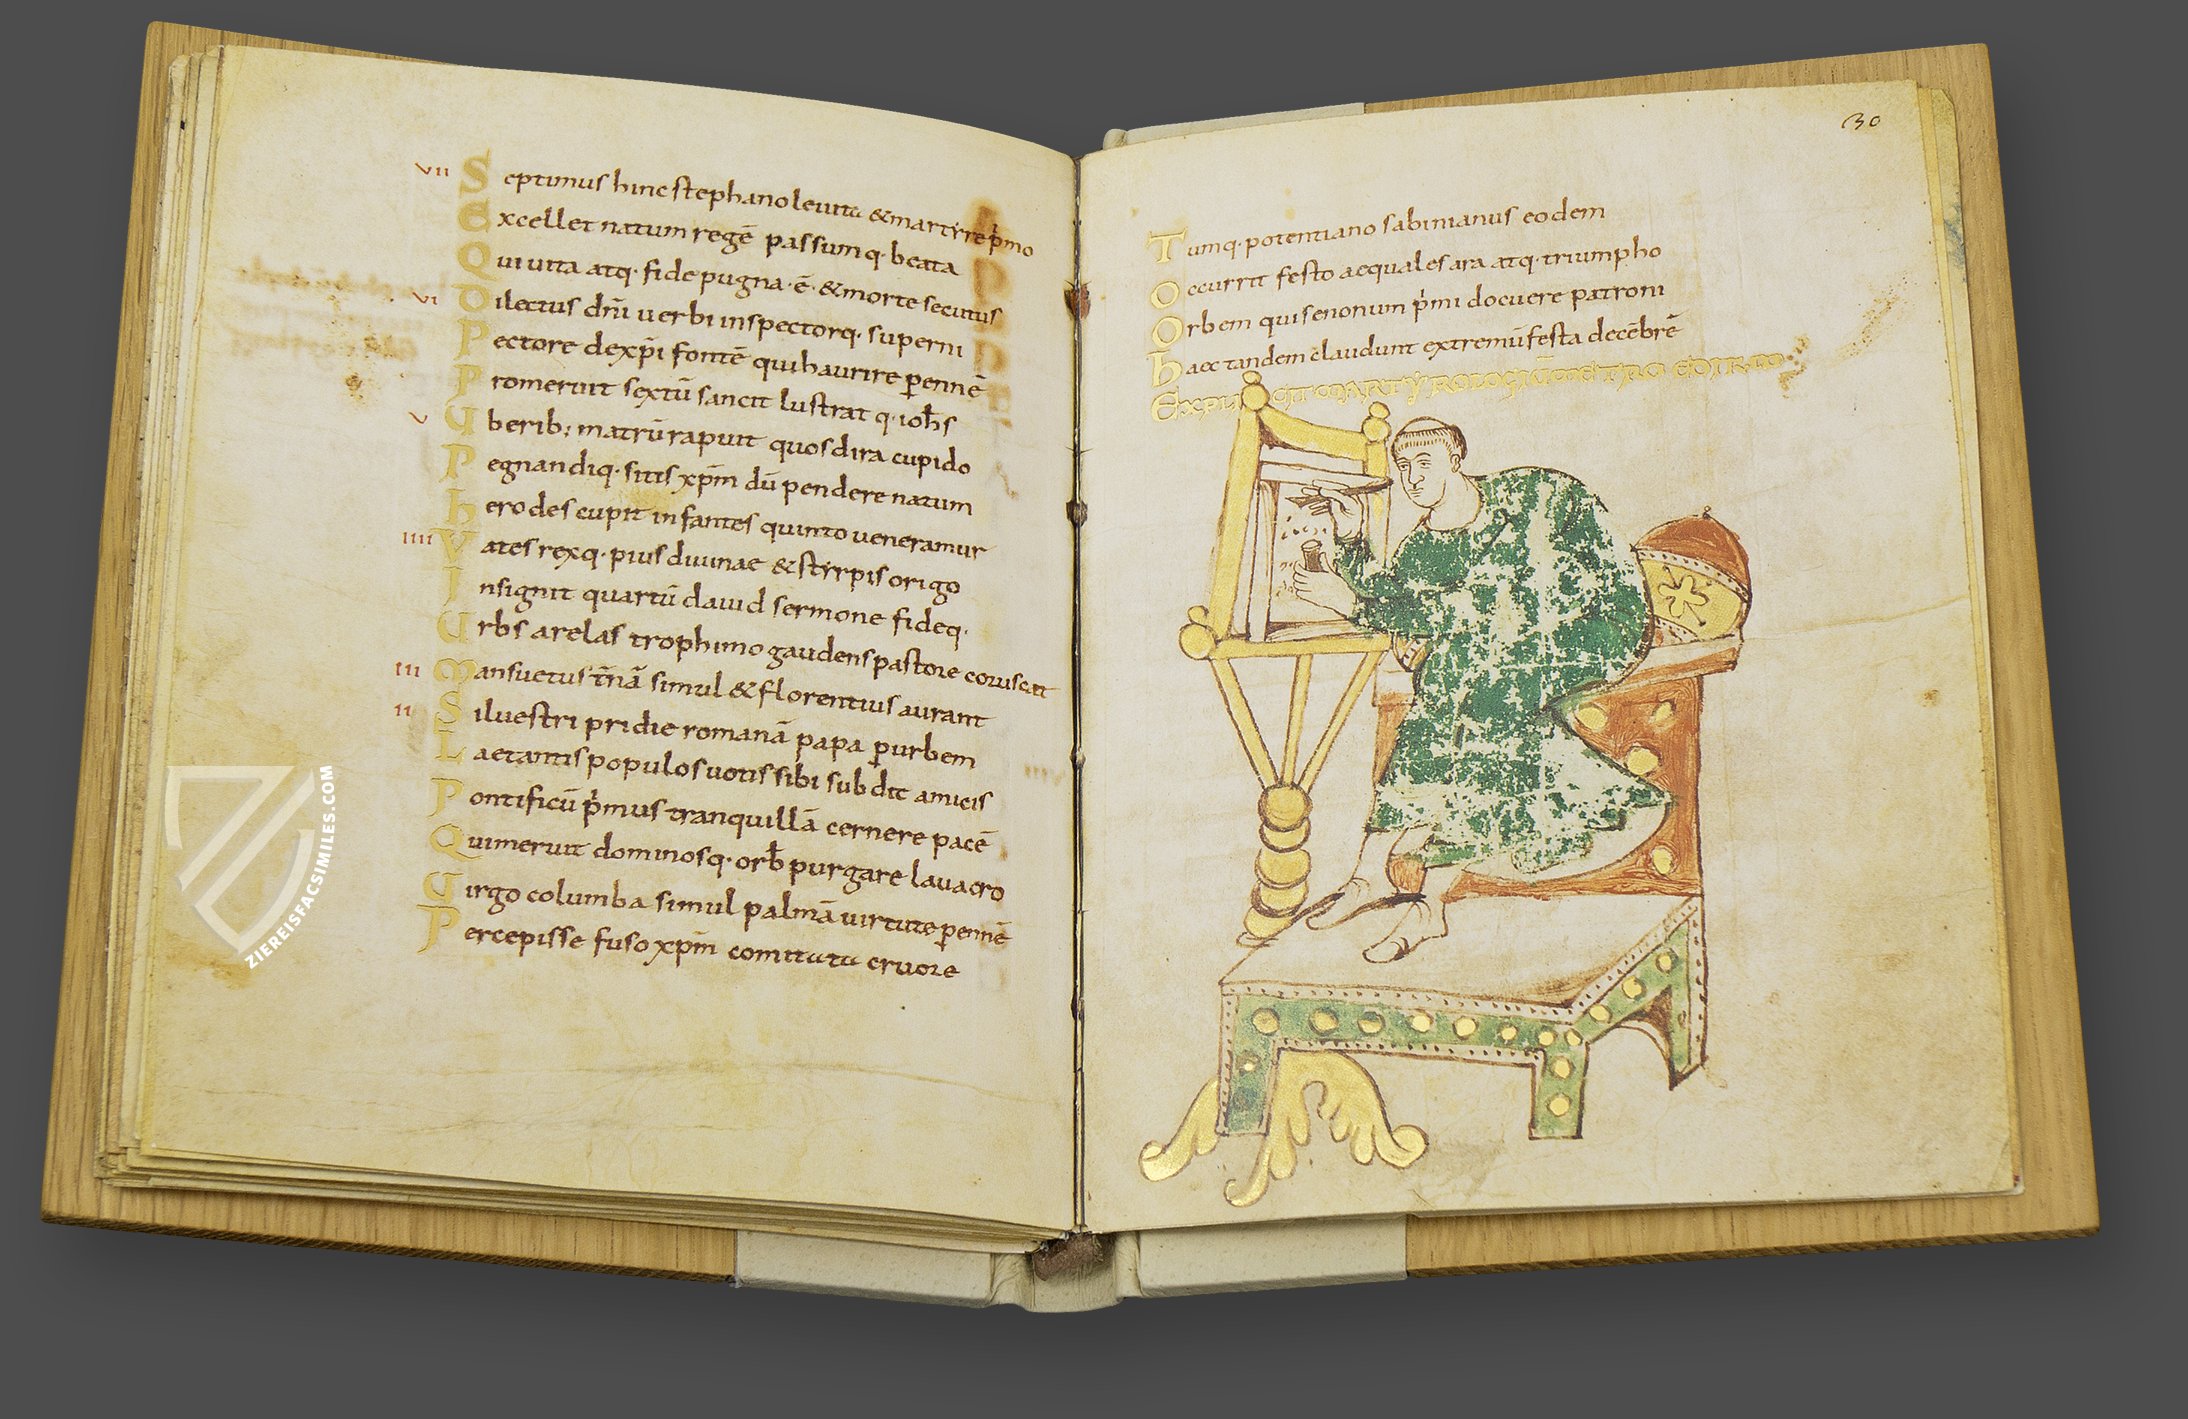 vii Septimus hinc stephano leuita & martyre p̓mo
Excellet natum regē passumq· beata
Qui uita atq· fide pugna· ē· & morte secutus
vi Dilectus dn̄i uerbi inspectorq· superni
Pectore dexp̄i fontē qui haurire p̄ennē
Promeruit sextū sancti lustrat q· ioh̄s
v Uberib; matrū rapuit quos dira cupido
Pegnandiq· sitis xp̄m dū pendere natum
herodes cupit infantes quinto ueneramur
iiii Vates rexq· pius diuinae & styrpis origo
Insignit quartū dauid sermone fideq·
Urbs arelas trophimo gaudens pastore coruscat
iii Mansuetus t̄nā simul & florentius aurant
ii Siluestri pridie romanā papa p̄urbem
Laetantis populos uotis sibi subdit amicis
Pontificū p̓mus tranquillā cernere pacē
Quimeruit dominosq· orb̄ purgare lauacro
Uirgo columba simul palmā uirtute p̄ennē
Percepisse fuso xp̄m comitata cruore
30
Tumq· potentiano sabinianus eodem
Occurrit festo aequales ara atq· triumpho
Orbem qui senonum p̓mi docuere patroni
haec tandem claudunt extremū festa decēbrē
EXPLICIT MARTYROLOGIŪ METRO EDITO
ZIEREISFACSIMILES.COM